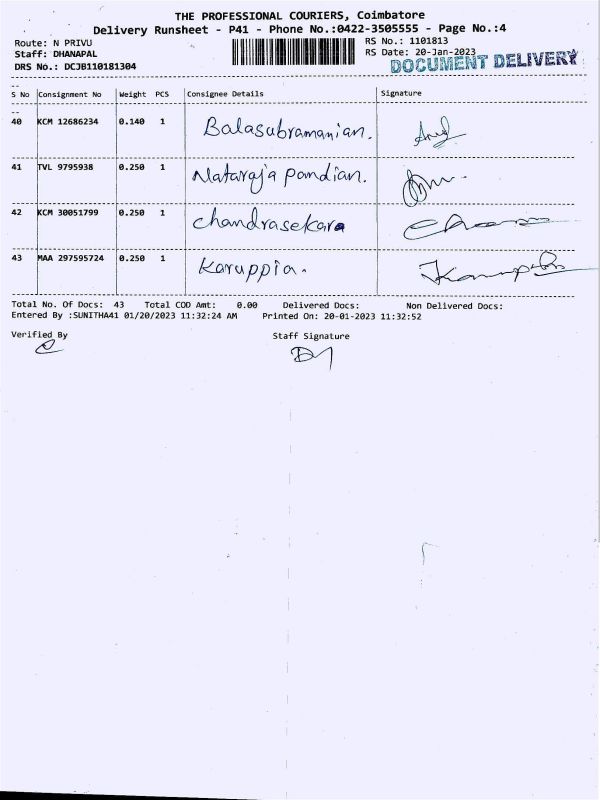 THE PROFESSIONAL COURIERS, Coimbatore
Delivery Runsheet - P41 - Phone No.:0422-3505555 - Page No.:4
Route: N PRIVU RS No.: 1101813
Staff: DHANAPAL RS Date: 20-Jan-2023
DRS No.: DCJB110181304 DOCUMENT DELIVERY
S No Consignment No Weight PCS Consignee Details Signature
40 KCM 12686234 0.140 1 Balasubramanian.
41 TVL 9795938 0.250 1 Nataraja pandian.
42 KCM 30051799 0.250 1 Chandrasekara
43 MAA 297595724 0.250 1 Karuppia.
Total No. Of Docs: 43 Total COD Amt: 0.00 Delivered Docs: Non Delivered Docs:
Entered By :SUNITHA41 01/20/2023 11:32:24 AM Printed On: 20-01-2023 11:32:52
Verified By Staff Signature